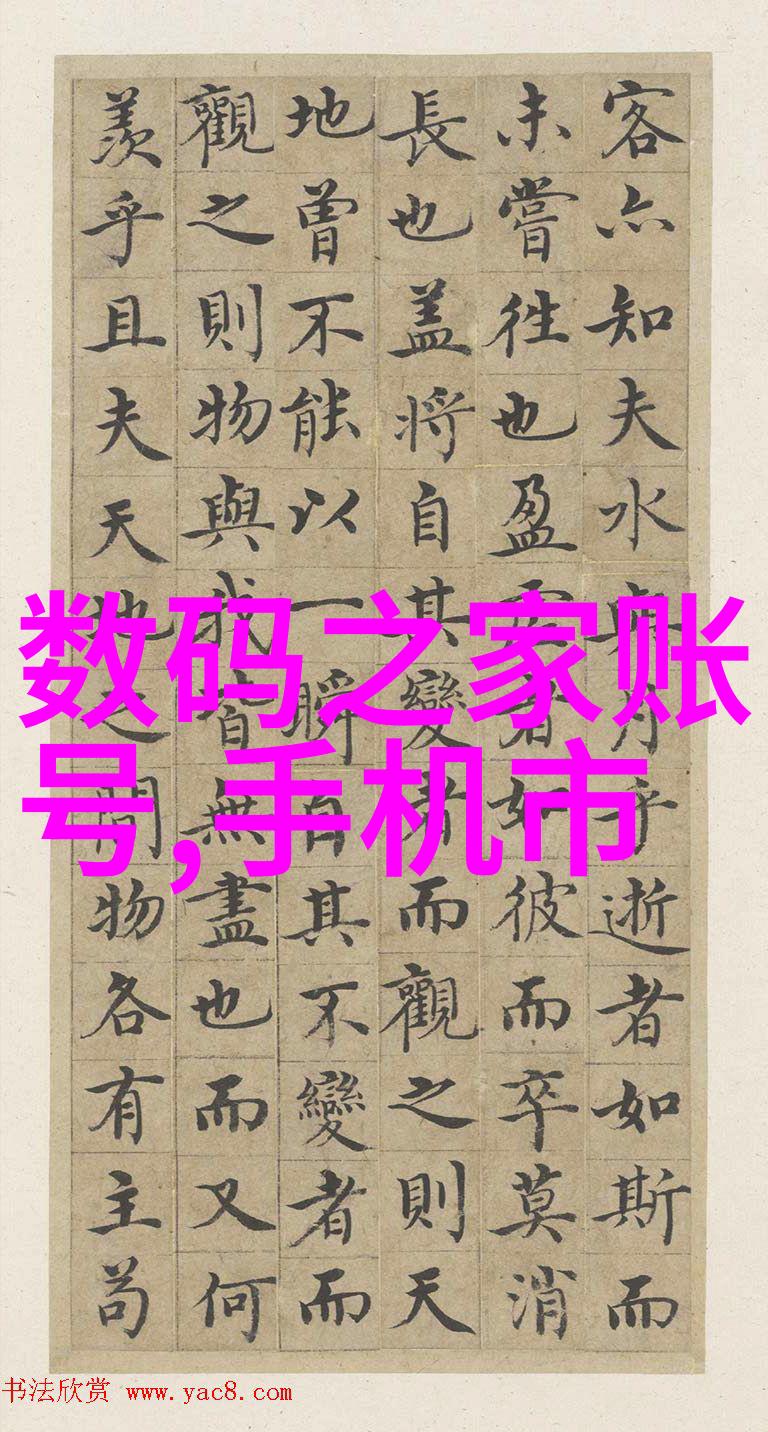 客亦知夫水與月乎逝者如斯而
未嘗往也盈虛者如彼而卒莫消
長也盖將自其變者而觀之則天
地曾不能以一瞬自其不變者而
觀之則物與我皆無盡也而又何
羨乎且夫天地之間物各有主苟
数码之家账
号,手机市
书法欣赏 www.yac8.com